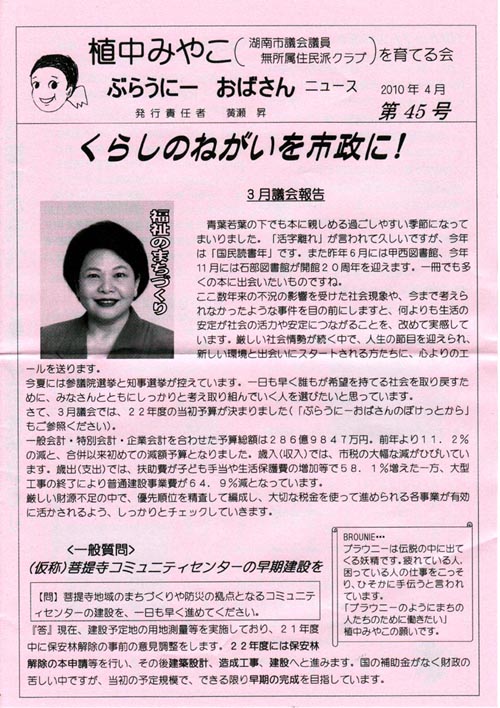 植中みやこ(湖南市議会議員 無所属住民派クラブ)を育てる会
ぶらうにー おばさん ニュース 2010年4月
発行責任者 黄瀬 昇 第45号
くらしのねがいを市政に!
3月議会報告
福祉のまちづくり
青葉若葉の下でも本に親しめる過ごしやすい季節になって
まいりました。「活字離れ」が言われて久しいですが、今年
は「国民読書年」です。また昨年6月には甲西図書館、今年
11月には石部図書館が開館20周年を迎えます。一冊でも多
くの本に出会いたいものですね。
ここ数年来の不況の影響を受けた社会現象や、今まで考えら
れなかったような事件を目の前にしますと、何よりも生活の
安定が社会の活力や安定につながることを、改めて実感して
います。厳しい社会情勢が続く中で、人生の節目を迎えられ、
新しい環境と出会いにスタートされる方たちに、心よりのエ
ールを送ります。
今夏には参議院選挙と知事選挙が控えています。一日も早く誰もが希望を持てる社会を取り戻すた
めに、みなさんとともにしっかりと考え取り組んでいく人を選びたいと思っています。
さて、3月議会では、22年度の当初予算が決まりました(「ぶらうにーおばさんのぽけっとから」
もご参照ください)。
一般会計・特別会計・企業会計を合わせた予算総額は286億9847万円。前年より11.2%
の減と、合併以来初めての減額予算となりました。歳入(収入)では、市税の大幅な減がひびいてい
ます。歳出(支出)では、扶助費が子ども手当や生活保護費の増加等で58.1%増えた一方、大型
工事の終了により普通建設事業費が64.9%減となっています。
厳しい財源不足の中で、優先順位を精査して編成し、大切な税金を使って進められる各事業が有効
に活かされるよう、しっかりとチェックしていきます。
<一般質問>
(仮称)菩提寺コミュニティセンターの早期建設を
【問】菩提寺地域のまちづくりや防災の拠点となるコミュニテ
ィセンターの建設を、一日も早く進めてください。
『答』現在、建設予定地の用地測量等を実施しており、21年度
中に保安林解除の事前の意見調整をします。22年度には保安林
解除の本申請等を行い、その後建築設計、造成工事、建設へと進みます。国の補助金がなく財政の
苦しい中ですが、当初の予定規模で、できる限り早期の完成を目指しています。
BROUNIE•••
ブラウニーは伝説の中に出て
くる妖精です。疲れている人、
困っている人の仕事をこっそ
り、ひそかに手伝うと言われ
ています。
「ブラウニーのようにまちの
人たちのために働きたい」
植中みやこの願いです。